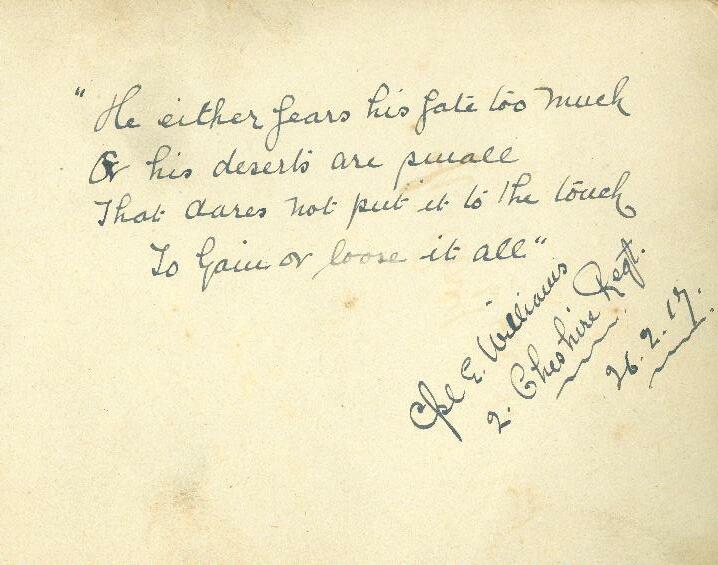 "He either fears his fate too much
Or his deserts are small
That dares not put it to the touch
To Gain or loose it all"
Cpl E. Williams
2. Cheshire Regt.
26.2.17.